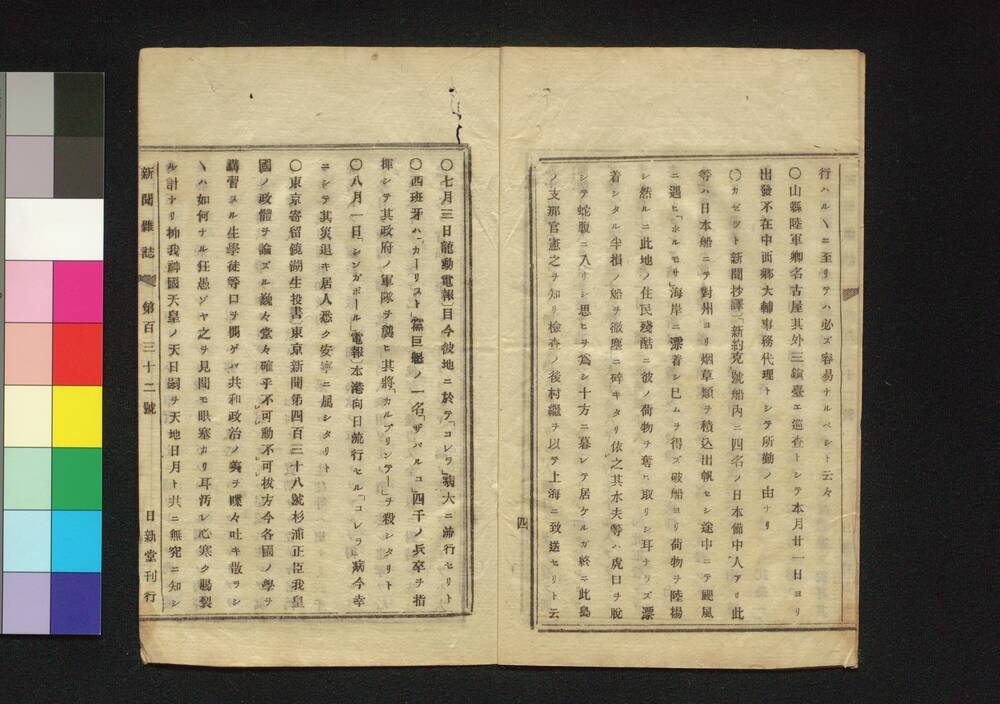 行ハルヽニ至リテハ必ズ容易ナルベシト云々
〇山縣陸軍卿名古屋其外三鎮臺エ巡査トシテ本月廿一日ヨリ
出發不在中西郷大輔事務代理トシテ所勤ノ由ナリ
〇カゼツト新聞抄譯「新約克」號船內ニ四名ノ日本備中人アリ此
等ハ日本船ニテ對州ヨリ烟草類ヲ積込出帆セシ途中ニテ颶風
ニ遇ヒ「ホルモサ」海岸ニ漂着シ巳ムヲ得ズ破船ヨリ荷物ヲ陸揚
シ然ルニ此地ノ住民殘酷ニ彼ノ荷物ヲ奪ヒ取リシ耳ナラズ漂
着シタル半損ノ船ヲ微塵ニ碎キタリ依之其水夫等ハ虎口ヲ脫
シテ蛇腹ニ入リシ思ヒヲ爲シ十方ニ暮レテ居ケルガ終ニ此島
ノ支那官憲之ヲ知リ檢査ノ後村繼ヲ以テ上海ニ致送セリト云
四
〇七月三日龍動電報〕目今彼地ニ於テ「コレラ」病大ニ流行セリト
〇西班牙ハ「カーリスト」黨巨魁ノ一名「ザバルコ」四千ノ兵卒ヲ指
揮シテ其政府ノ軍隊ヲ襲ヒ其將「カルプリンテー」ヲ殺シタリト
〇八月一日「シンガポール」電報〕本港向日流行セル「コレラ」病今幸
ニシテ其災退キ居人悉ク安寧ニ属シタリト
〇東京寄留鏡湖生投書東京新聞第四百三十八號杉浦正臣我皇
國ノ政體ヲ論ズル巍々堂々確乎不可動不可拔方今各國ノ學ヲ
講習スル生學徒等口ヲ開ゲバ共和政治ノ美ヲ喋々吐キ散ラシ
ヽハ如何ナル狂愚ゾヤ之ヲ見聞モ眼塞カリ耳汚レ心寒ク膓裂
ル計ナリ抑我神國天皇ノ天日嗣ヲ天地日月ト共ニ無究ニ知シ
新聞雜誌 第百三十二號 日新堂刊行